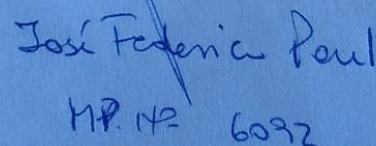 José Federico Poul
MP. Nº 6092